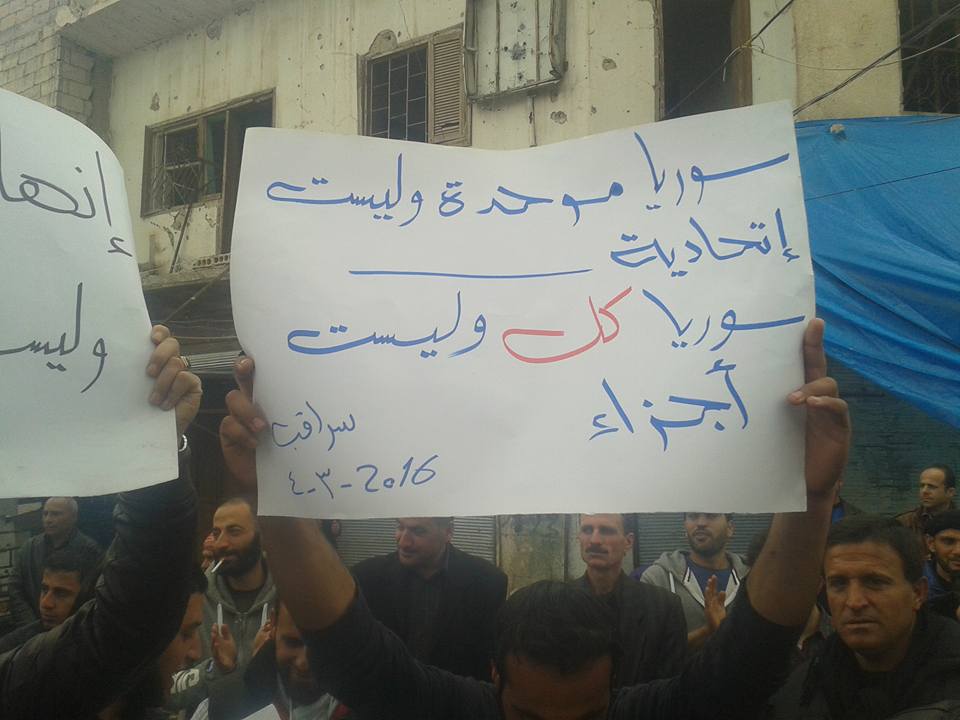 سوريا موحدة وليست
إتحادية
سوريا كل وليست
أجزاء
سراقب
٤-٣-2016
إنها
وليس